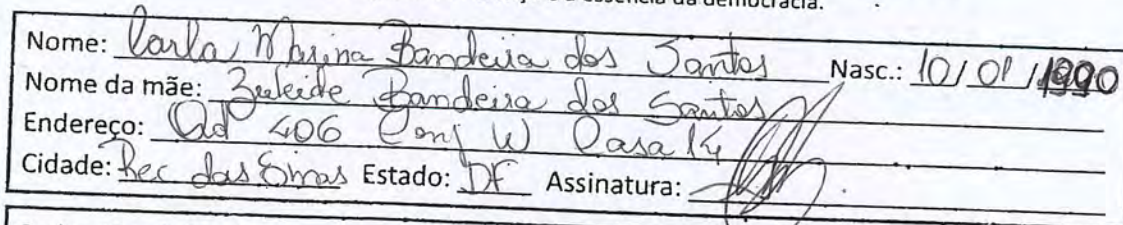 a essência da democracia.
Nome: Carla Marina Bandeira dos Santos Nasc.: 10/01/1990
Nome da mãe: Zuleide Bandeira dos Santos
Endereço: Qd 406 Conj W Casa 14
Cidade: Rec das Emas Estado: DF Assinatura: